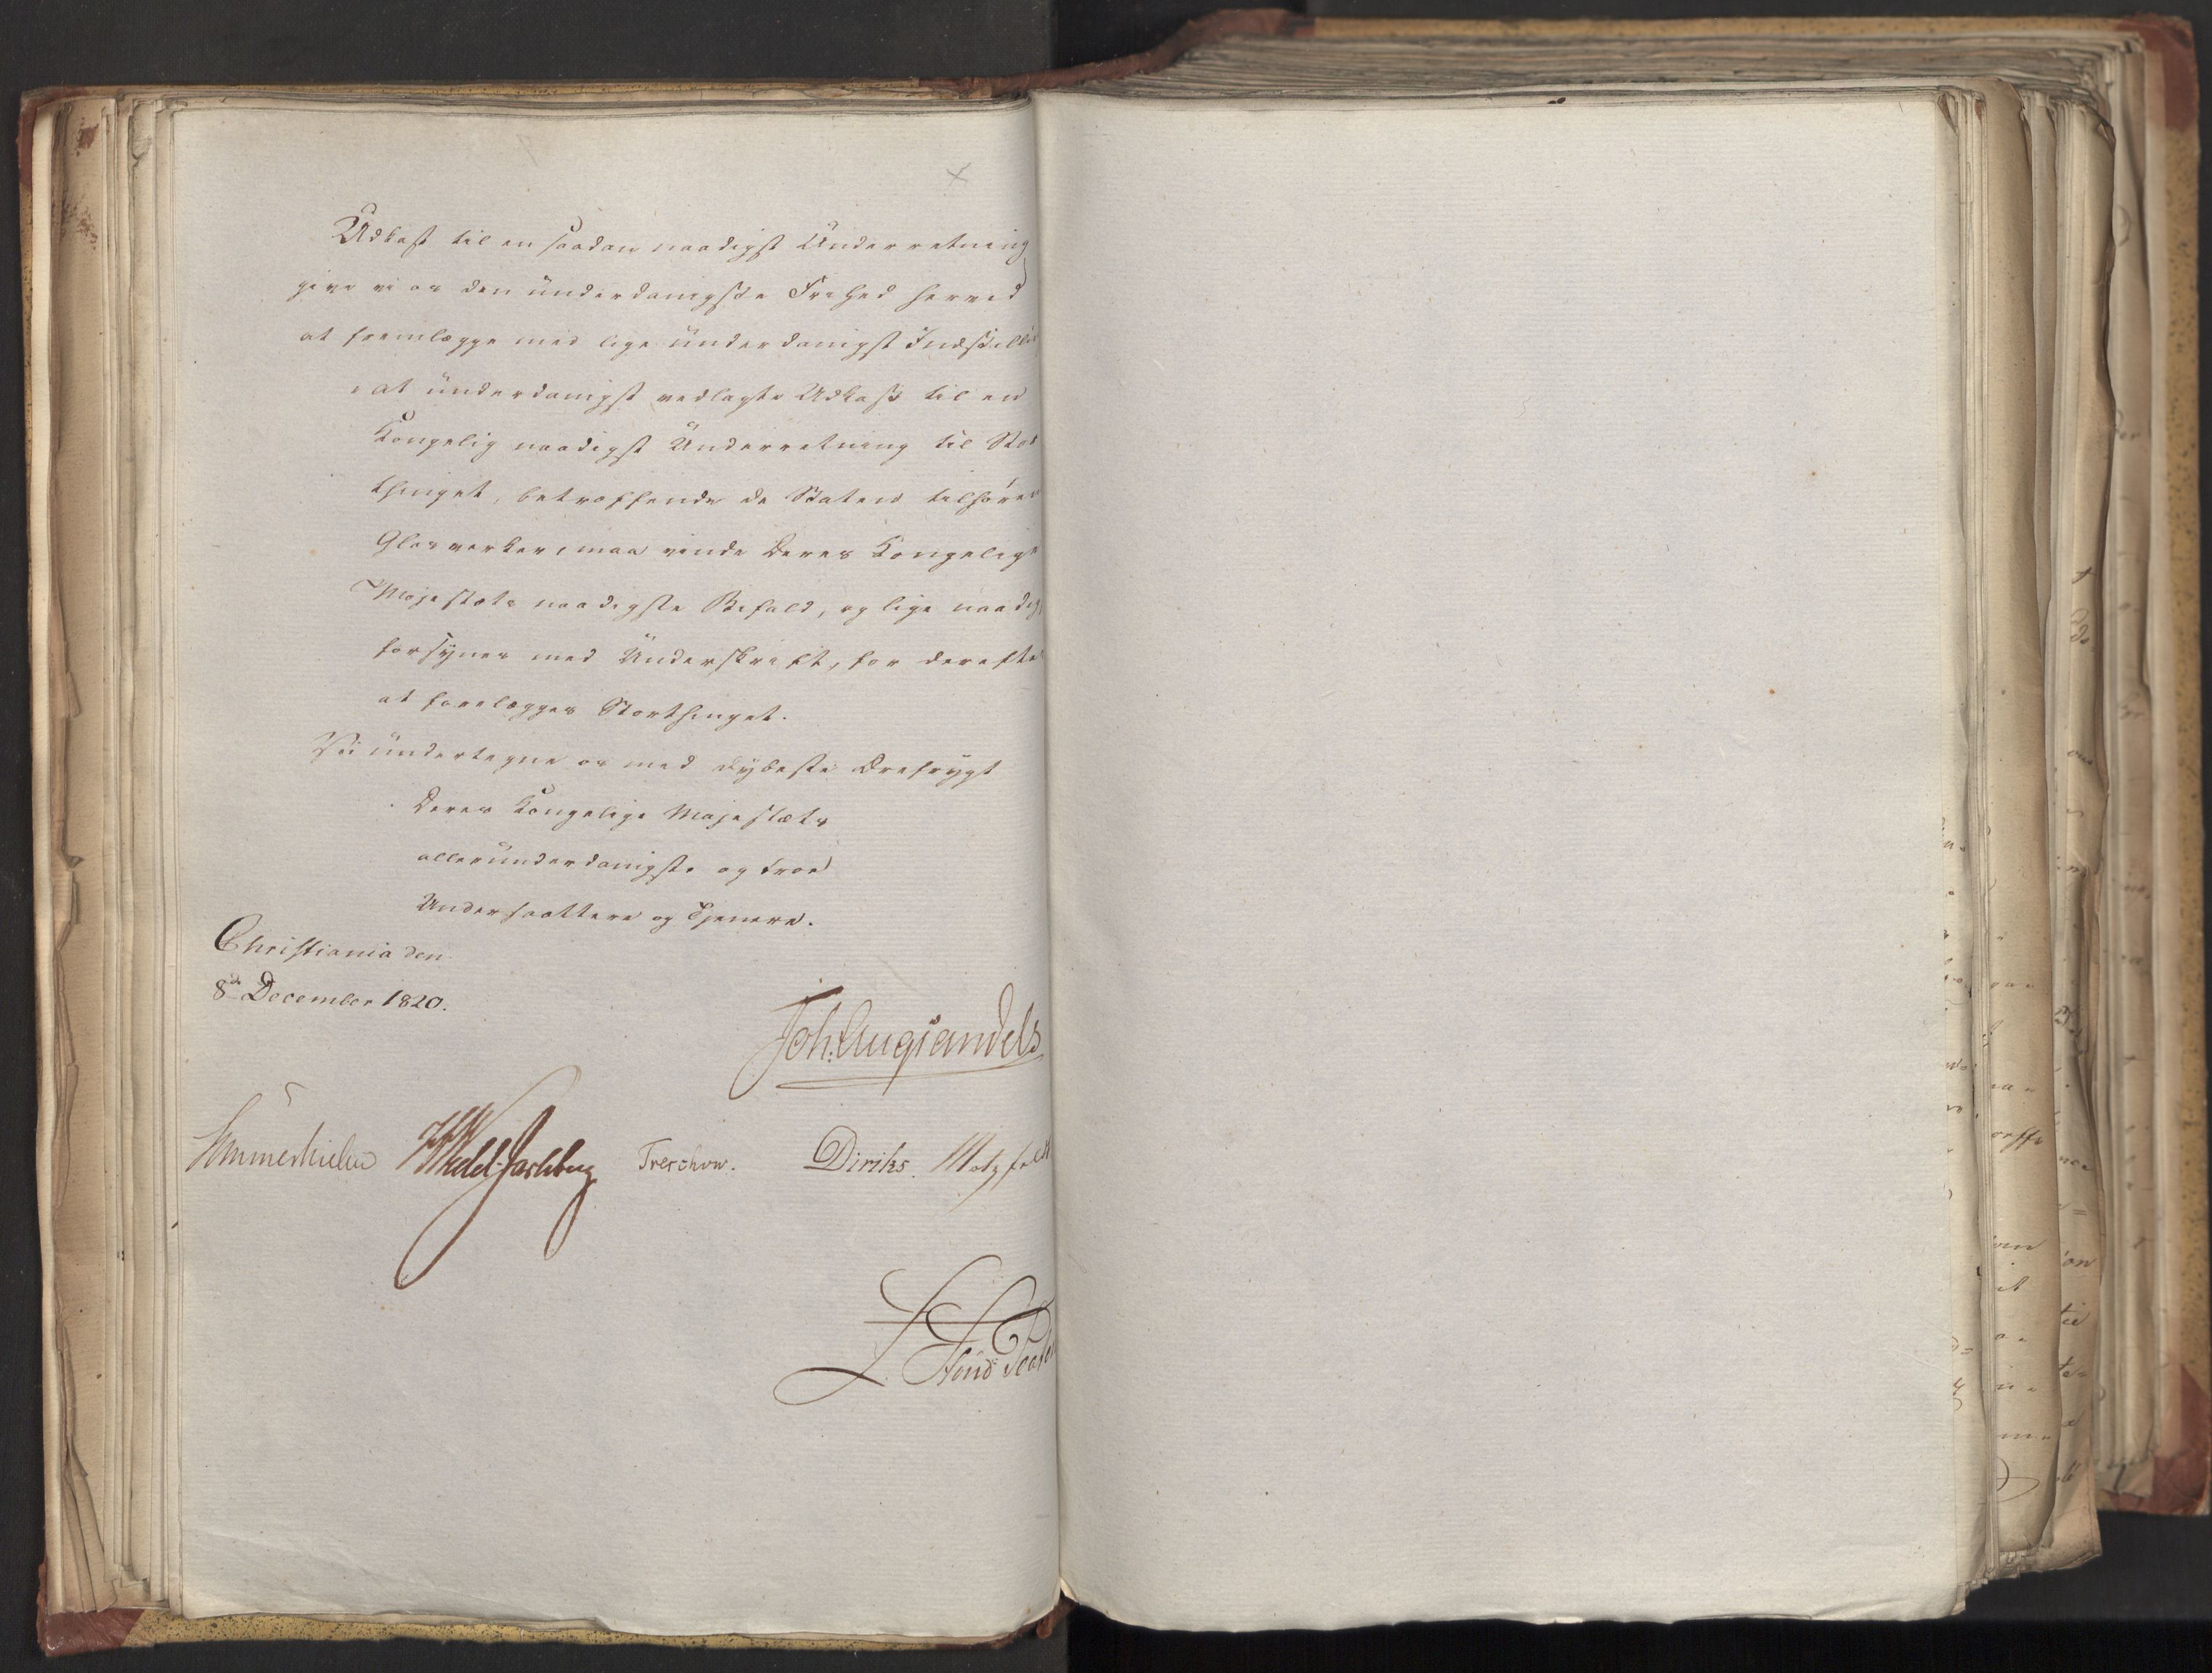 Udkast til en saadan naadigst Underretning
give vi os den underdanigste Frihed herved
at fremlægge med lige underdanigst Indstilli
at underdanigst vedlagte Udkast til en
Kongelig naadigst Underretning til Stor
thinget, betræffende de Staten tilhøren
Glasværker, maa vinde Deres Kongelige
Majestæts naadigste Bifald, og lige naadigs
forsynes med Underskrift, for derefter
at forelægges Storthinget.
Vi undertegne os med dybeste Ærefrygt
Deres Kongelige Majestæts
allerunderdanigste og troe
Undersaattere og Tjenere.
Christiania den
8de December 1820.
Joh: Aug Sandels
Sommerhielm Wedel-Jarlsberg Treschow. Diriks. Motzfeldt